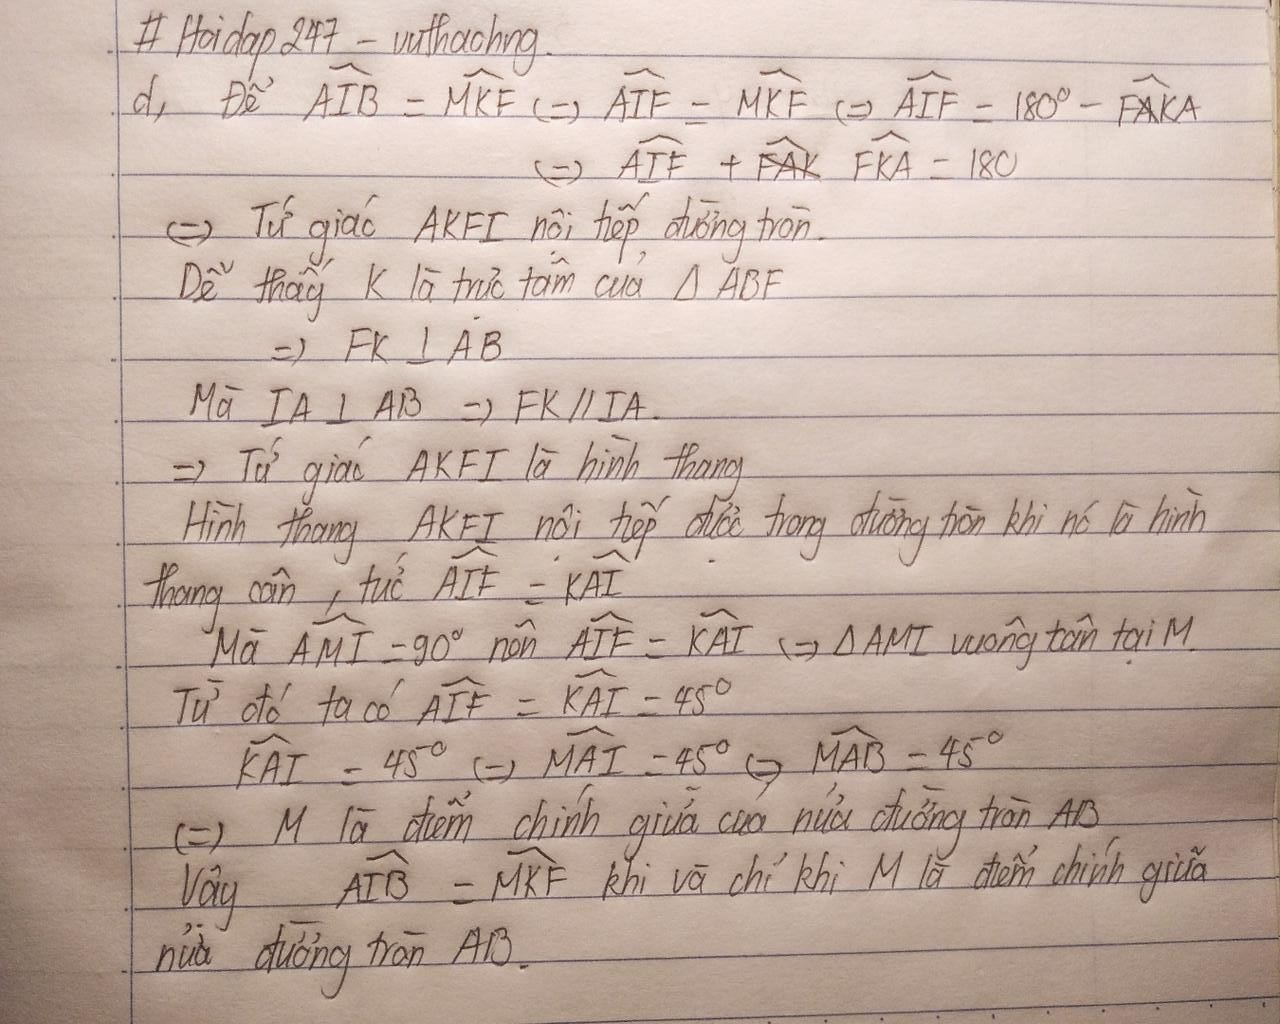 # Hoidap247 - vuthaohng.
d, Để AIB = MKF (=) AIF = MKF (=) AIF = 180° - FKA
(=) AIF + FKA = 180
(=) Tứ giác AKFI nội tiếp đường tròn.
Dễ thấy K là trực tâm của Δ ABF
=) FK ⊥ AB
Mà IA ⊥ AB =) FK // IA.
=) Tứ giác AKFI là hình thang
Hình thang AKFI nội tiếp được trong đường tròn khi nó là hình
thang cân, tức AIF = KAI
Mà AMI = 90° nên AIF = KAI (=) Δ AMI vuông tân tại M.
Từ đó ta có AIF = KAI = 45°
KAI = 45° (=) MAI = 45° (=) MAB = 45°
(=) M là điểm chính giữa của nửa đường tròn AB
Vậy AIB = MKF khi và chỉ khi M là điểm chính giữa
nửa đường tròn AB.